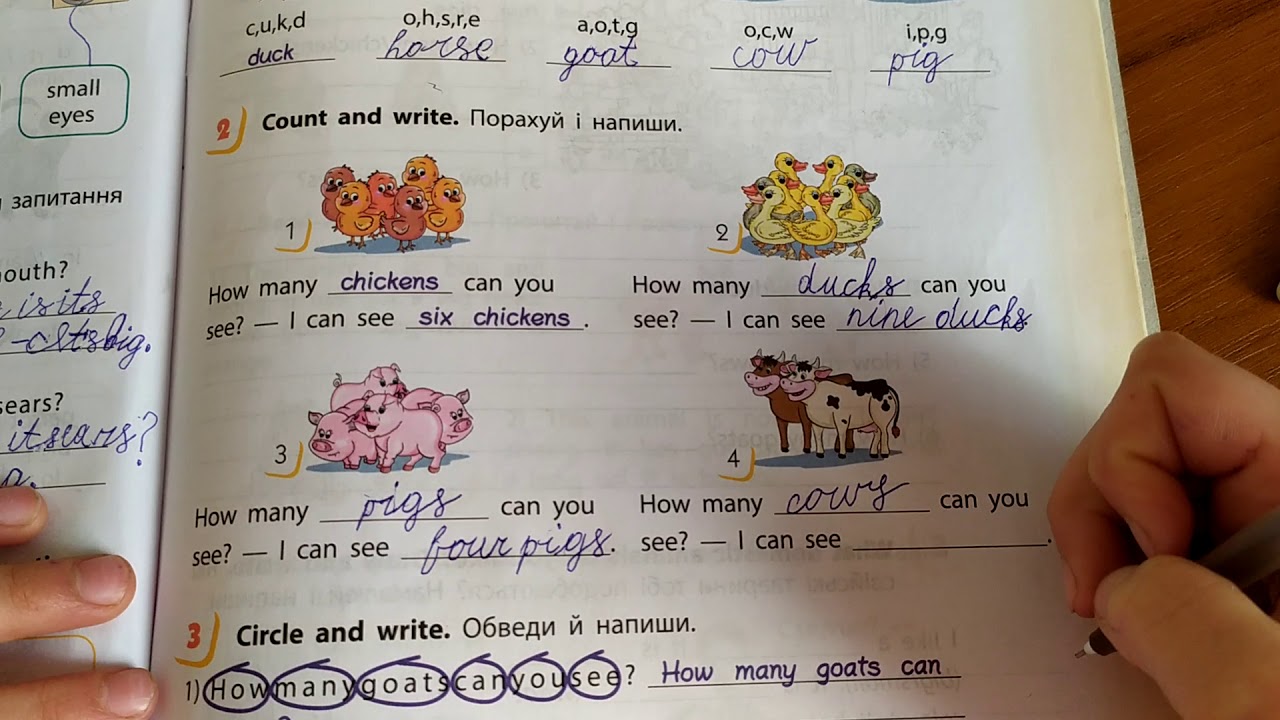 c,u,k,d o,h,s,r,e a,o,t,g o,c,w i,p,g
duck horse goat cow pig
small
eyes
2 Count and write. Порахуй і напиши.
запитання
1 2
outh?
How many chickens can you How many ducks can you
see? — I can see six chickens. see? — I can see nine ducks
is its
big.
sears?
3 4
How many pigs can you How many cows can you
see? — I can see four pigs. see? — I can see .
3 Circle and write. Обведи й напиши.
1) Howmanygoatscanyousee? How many goats can